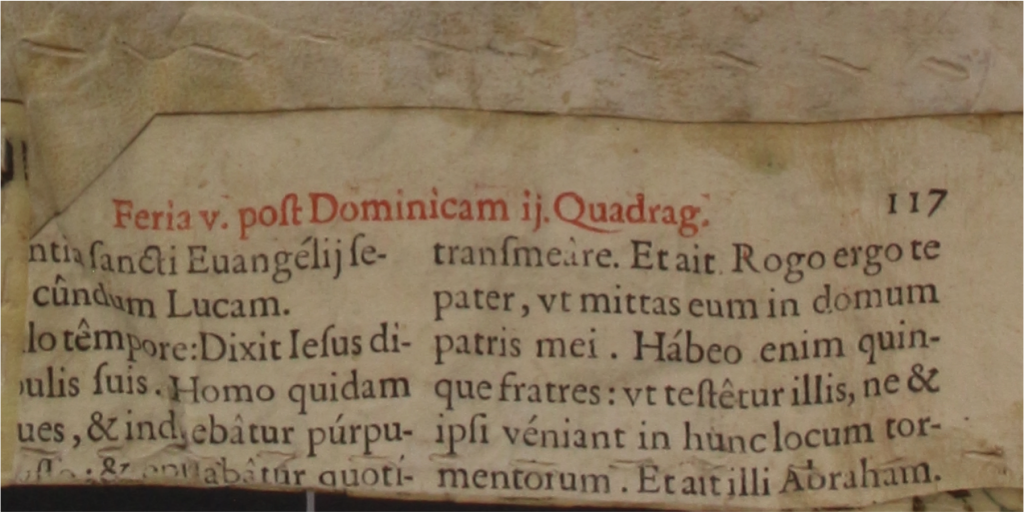 Feria v. poſt Dominicam ij. Quadrag. 117
ntia ſancti Euangélij ſe-
cûndum Lucam.
lo têmpore: Dixit Ieſus di-
ulis ſuis. Homo quidam
ues, & induebâtur púrpu-
& epulabâtur quotí-
tranſmeàre. Et ait. Rogo ergo te
pater, vt mittas eum in domum
patris mei. Hábeo enim quin-
que fratres: vt teſtêtur illis, ne &
ipſi véniant in hunc locum tor-
mentorum. Et ait illi Abraham.